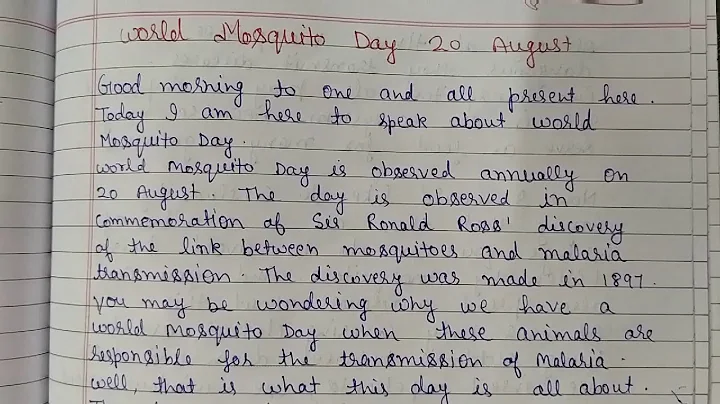 World Mosquito Day 20 August
Good morning to one and all present here.
Today I am here to speak about world
Mosquito Day.
World Mosquito Day is observed annually on
20 August. The day is observed in
commemoration of Sir Ronald Ross' discovery
of the link between mosquitoes and malaria
transmission. The discovery was made in 1897.
you may be wondering why we have a
world Mosquito Day when these animals are
responsible for the transmission of Malaria.
well, that is what this day is all about.